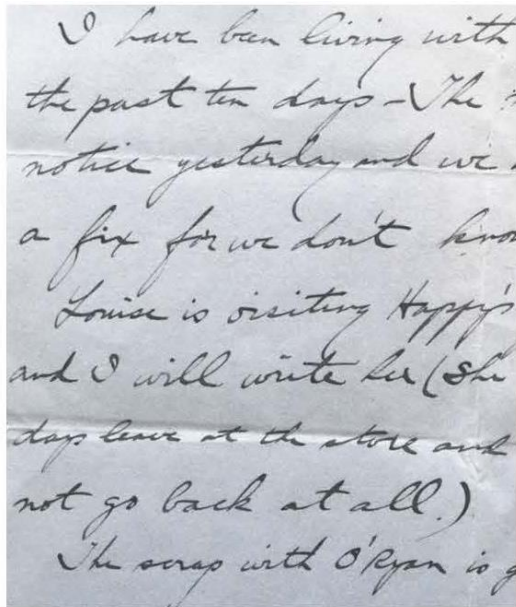 I have been living with
the past ten days - The
notice yesterday and we
a fix for we don't know
Louise is visiting Happy's
and I will write her (She
days leave at the store and
not go back at all.)
The scrap with O'Ryan is g